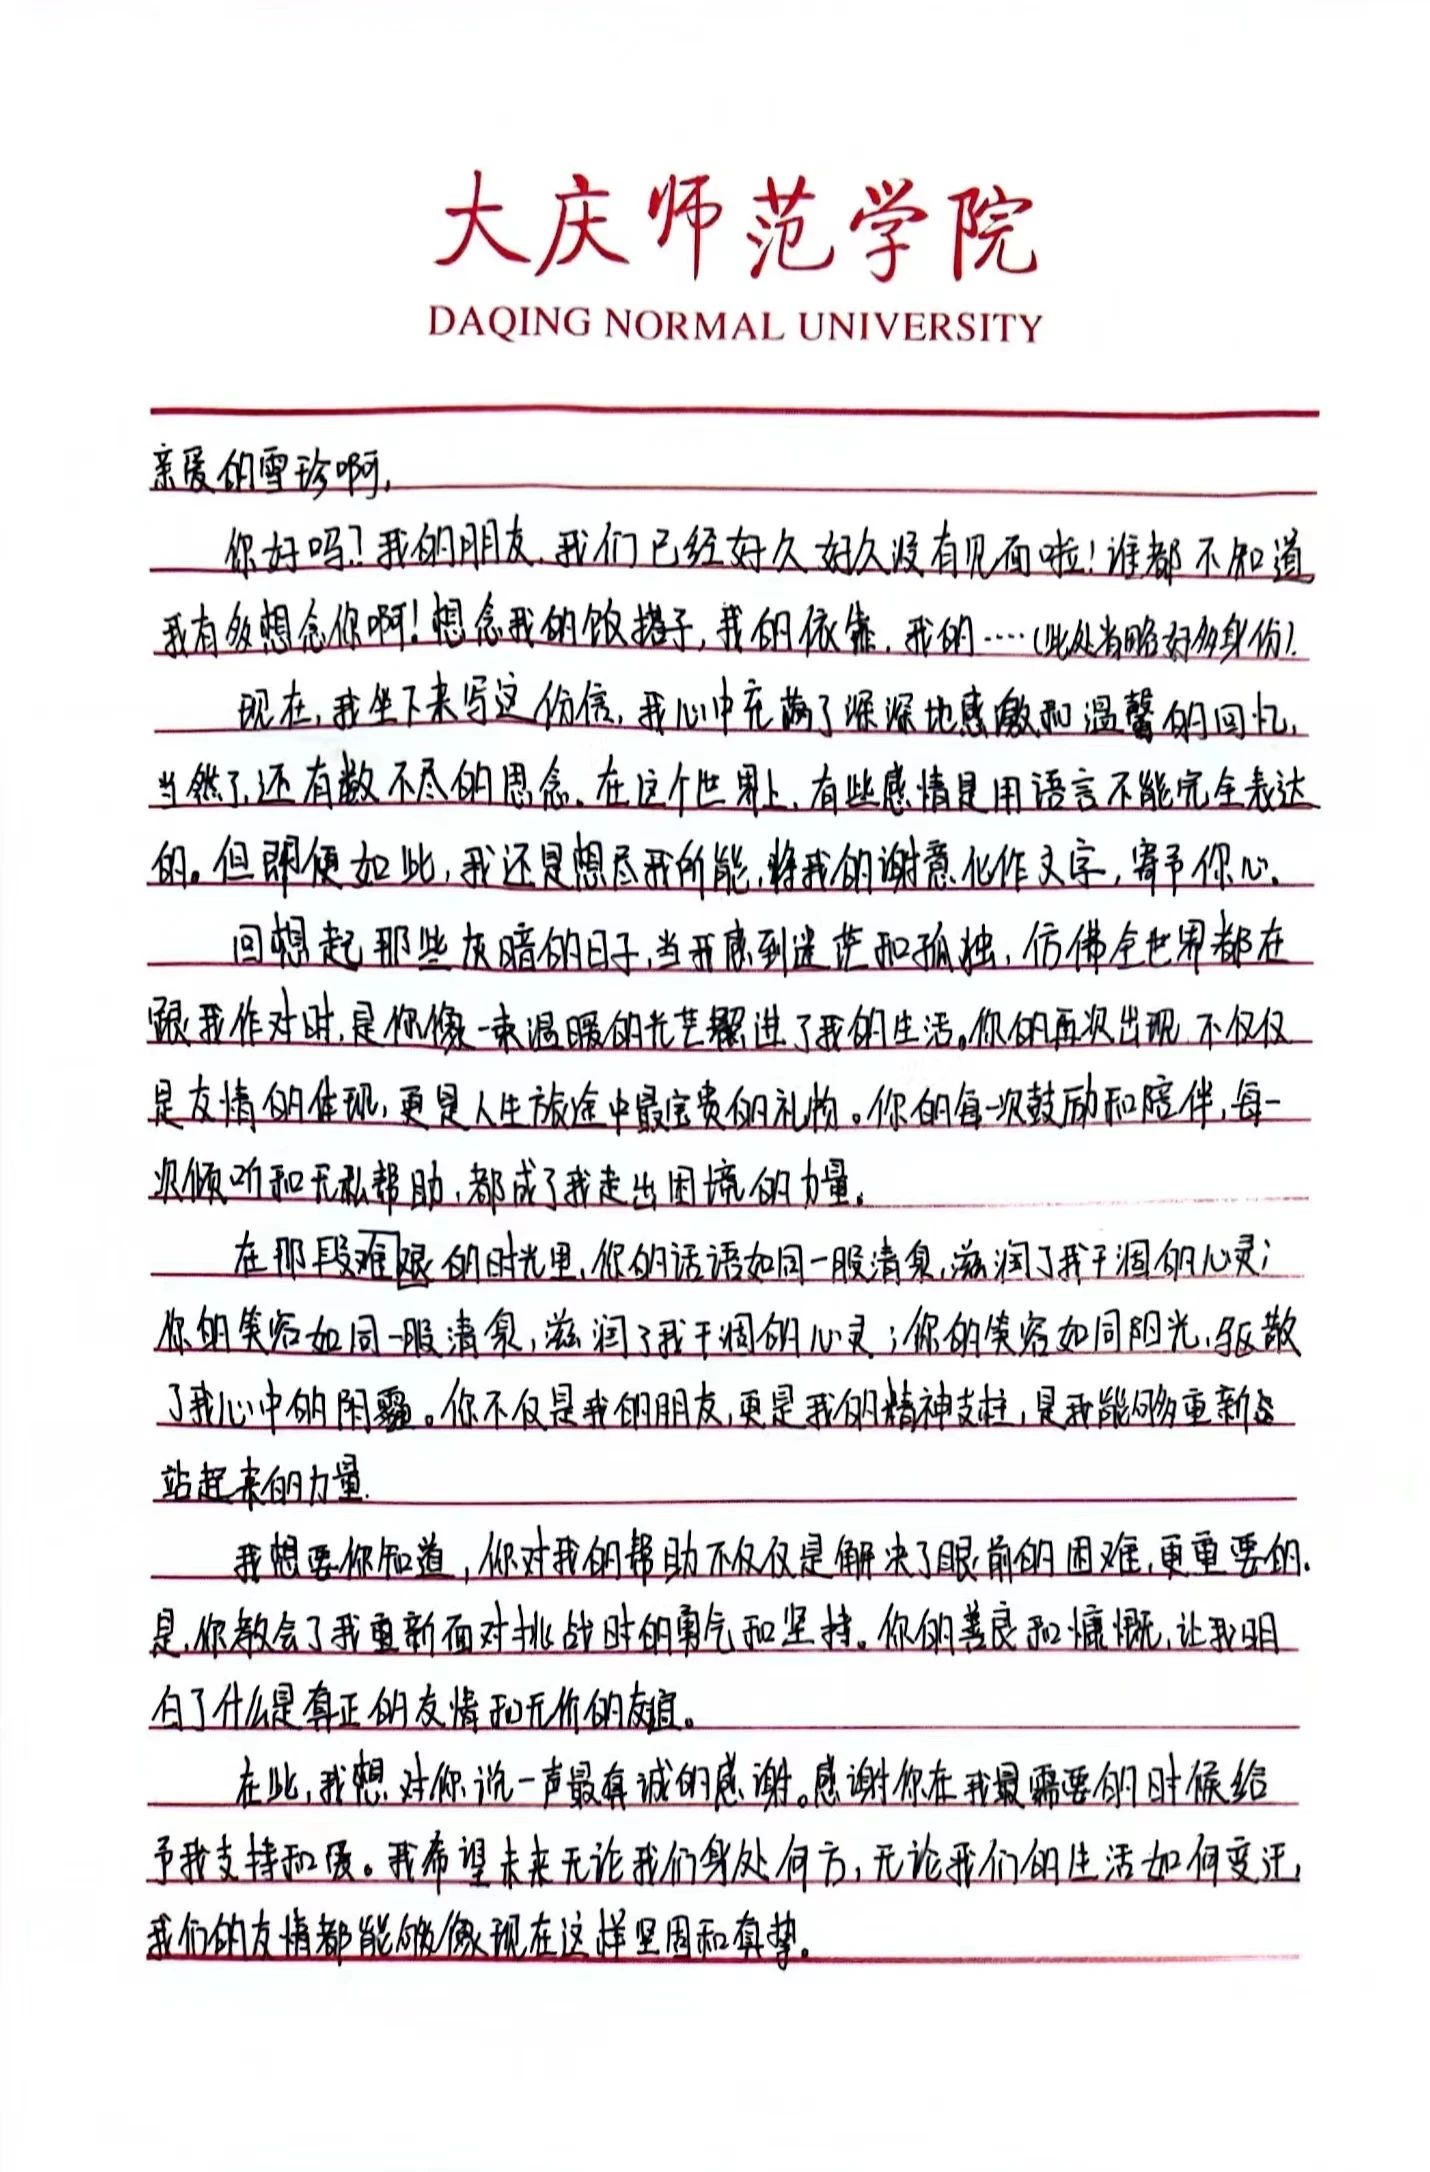 大庆师范学院
DAQING NORMAL UNIVERSITY
亲爱的雪珍啊,
你好吗?我的朋友,我们已经好久好久没有见面啦!谁都不知道
我有多想念你啊!想念我的饭搭子,我的依靠,我的……(此处省略好多身份).
现在,我坐下来写这份信,我心中充满了深深地感激和温馨的回忆,
当然了,还有数不尽的思念。在这个世界上,有些感情是用语言不能完全表达
的。但即便如此,我还是想尽我所能,将我的谢意化作文字,寄予你心。
回想起那些灰暗的日子,当我感到迷茫和孤独,仿佛全世界都在
跟我作对时,是你像一束温暖的光芒照进了我的生活。你的再次出现,不仅仅
是友情的体现,更是人生旅途中最宝贵的礼物。你的每一次鼓励和陪伴,每一
次倾听和无私帮助,都成了我走出困境的力量。
在那段难艰的时光里,你的话语如同一股清泉,滋润了我干涸的心灵;
你的笑容如同一股清泉,滋润了我干涸的心灵;你的笑容如同阳光,驱散
了我心中的阴霾。你不仅是我的朋友,更是我的精神支柱,是我能够重新
站起来的力量.
我想要你知道,你对我的帮助不仅仅是解决了眼前的困难,更重要的.
是,你教会了我重新面对挑战时的勇气和坚持。你的善良和慷慨,让我明
白了什么是真正的友情和无价的友谊。
在此,我想对你说一声最真诚的感谢。感谢你在我最需要的时候给
予我支持和爱。我希望未来无论我们身处何方,无论我们的生活如何变迁,
我们的友情都能够像现在这样坚固和真挚。